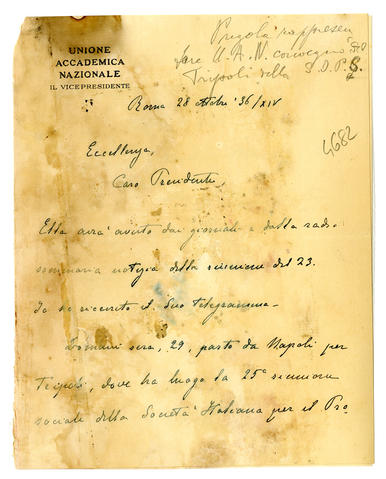 UNIONE
ACCADEMICA
NAZIONALE
IL VICEPRESIDENTE
Pregola rappresen
tare U.A.N. convegno
Tripoli della S.I.P.S.
Roma 28 ottobre '36/XIV
4682
Eccellenza,
Caro Presidente,
Ella avrà avuto dai giornali e dalla radio
sommaria notizia della riunione del 23.
Io ho ricevuto il Suo telegramma.
Domani sera, 29, parto da Napoli per
Tripoli, dove ha luogo la 25ª riunione
sociale della Società Italiana per il Pro